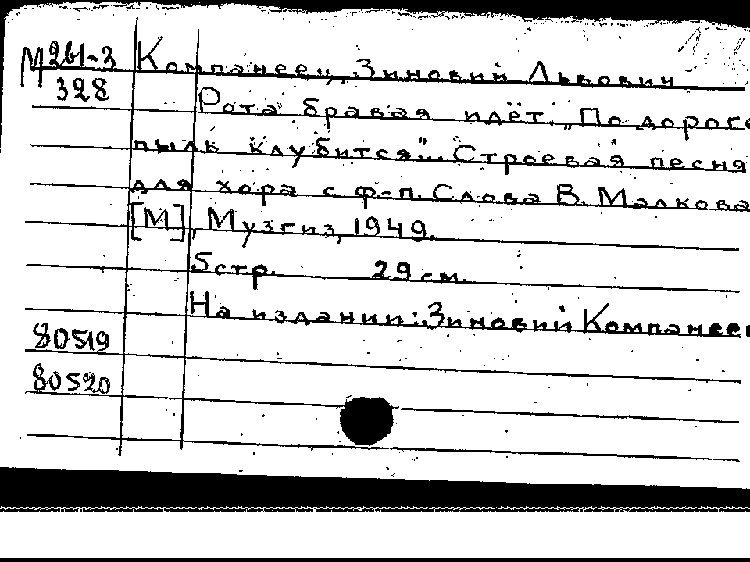 М 261-3 Компанеец, Зиновий Львович
328
Рота бравая идёт. „По дороге
пыль клубится"... Строевая песня
для хора с ф-п. Слова В. Малкова
[М], Музгиз, 1949.
5 стр. 29 см.
На издании: Зиновий Компанеец
80519
80520